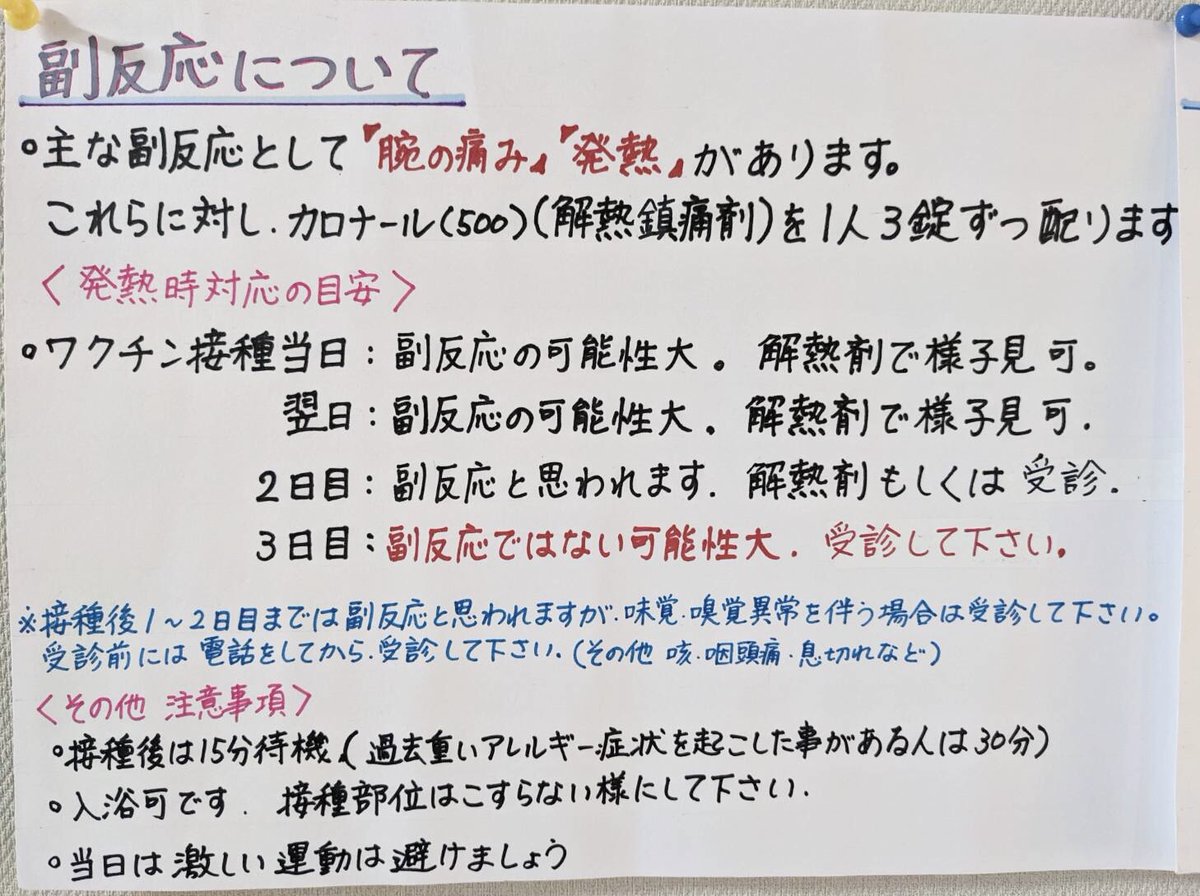 副反応について
○主な副反応として『腕の痛み』『発熱』があります。
これらに対し.カロナール(500)(解熱鎮痛剤)を1人3錠ずつ配ります
〈発熱時対応の目安〉
○ワクチン接種当日：副反応の可能性大。解熱剤で様子見可。
翌日：副反応の可能性大.解熱剤で様子見可.
2日目：副反応と思われます.解熱剤もしくは受診.
3日目：副反応ではない可能性大.受診して下さい。
※接種後1～2日目までは副反応と思われますが.味覚.嗅覚異常を伴う場合は受診して下さい。
受診前には電話をしてから.受診して下さい.(その他 咳.咽頭痛.息切れなど)
〈その他 注意事項〉
○接種後は15分待機(過去重いアレルギー症状を起こした事がある人は30分)
○入浴可です.接種部位はこすらない様にして下さい.
○当日は激しい運動は避けましょう